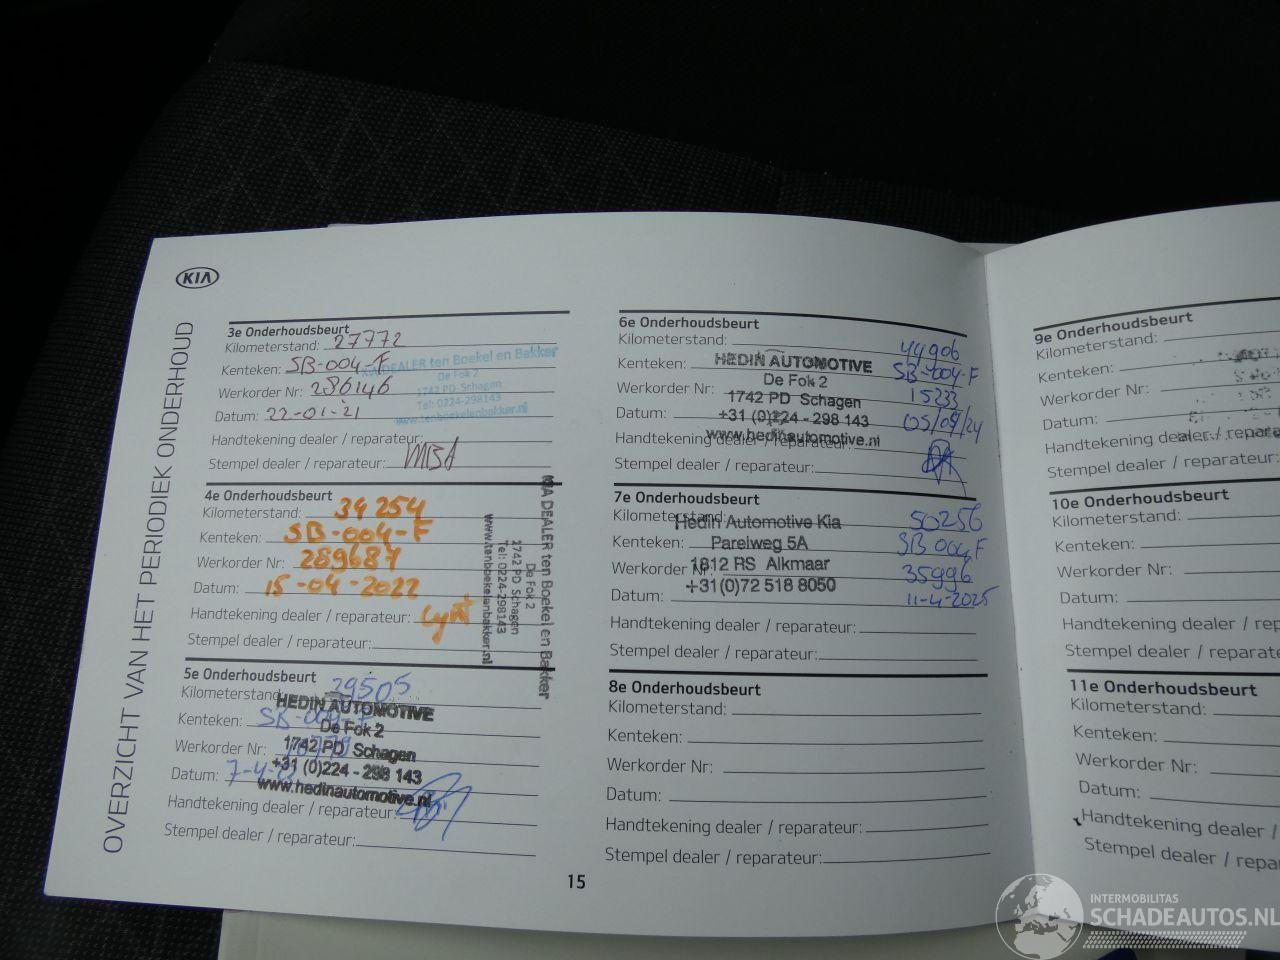 KIA
OVERZICHT VAN HET PERIODIEK ONDERHOUD
3e Onderhoudsbeurt
Kilometerstand: 27772
Kenteken: SB-004-F
Werkorder Nr: 286146
Datum: 22-01-21
Handtekening dealer / reparateur:
Stempel dealer / reparateur: MBA
KIA DEALER ten Boekel en Bakker
De Fok 2
1742 PD Schagen
Tel: 0224-298143
www.tenboekelenbakker.nl
4e Onderhoudsbeurt
Kilometerstand: 34254
Kenteken: SB-004-F
Werkorder Nr: 289687
Datum: 15-04-2022
Handtekening dealer / reparateur:
Stempel dealer / reparateur:
KIA DEALER ten Boekel en Bakker
De Fok 2
1742 PD Schagen
Tel: 0224-298143
www.tenboekelenbakker.nl
5e Onderhoudsbeurt
Kilometerstand 39505
Kenteken: SB-004-F
Werkorder Nr:
Datum: 7-4-
Handtekening dealer / reparateur:
Stempel dealer / reparateur:
HEDIN AUTOMOTIVE
De Fok 2
1742 PD Schagen
+31 (0)224 - 298 143
www.hedinautomotive.nl
15
6e Onderhoudsbeurt
Kilometerstand: 44906
Kenteken: SB-004-F
Werkorder Nr: 15233
Datum: 05/04/24
Handtekening dealer / reparateur:
Stempel dealer / reparateur:
HEDIN AUTOMOTIVE
De Fok 2
1742 PD Schagen
+31 (0)224 - 298 143
www.hedinautomotive.nl
7e Onderhoudsbeurt
Kilometerstand: 50256
Kenteken: SB 004 F
Werkorder Nr: 35996
Datum: 11-4-2025
Handtekening dealer / reparateur:
Stempel dealer / reparateur:
Hedin Automotive Kia
Parelweg 5A
1812 RS Alkmaar
+31(0)72 518 8050
8e Onderhoudsbeurt
Kilometerstand:
Kenteken:
Werkorder Nr:
Datum:
Handtekening dealer / reparateur:
Stempel dealer / reparateur:
9e Onderhoudsbeurt
Kilometerstand:
Kenteken:
Werkorder Nr:
Datum:
Handtekening dealer / repara
Stempel dealer / reparateur:
10e Onderhoudsbeurt
Kilometerstand:
Kenteken:
Werkorder Nr:
Datum:
Handtekening dealer / rep
Stempel dealer / reparateu
11e Onderhoudsbeurt
Kilometerstand:
Kenteken:
Werkorder Nr:
Datum:
Handtekening dealer /
Stempel dealer / repa
INTERMOBILITAS
SCHADEAUTOS.NL